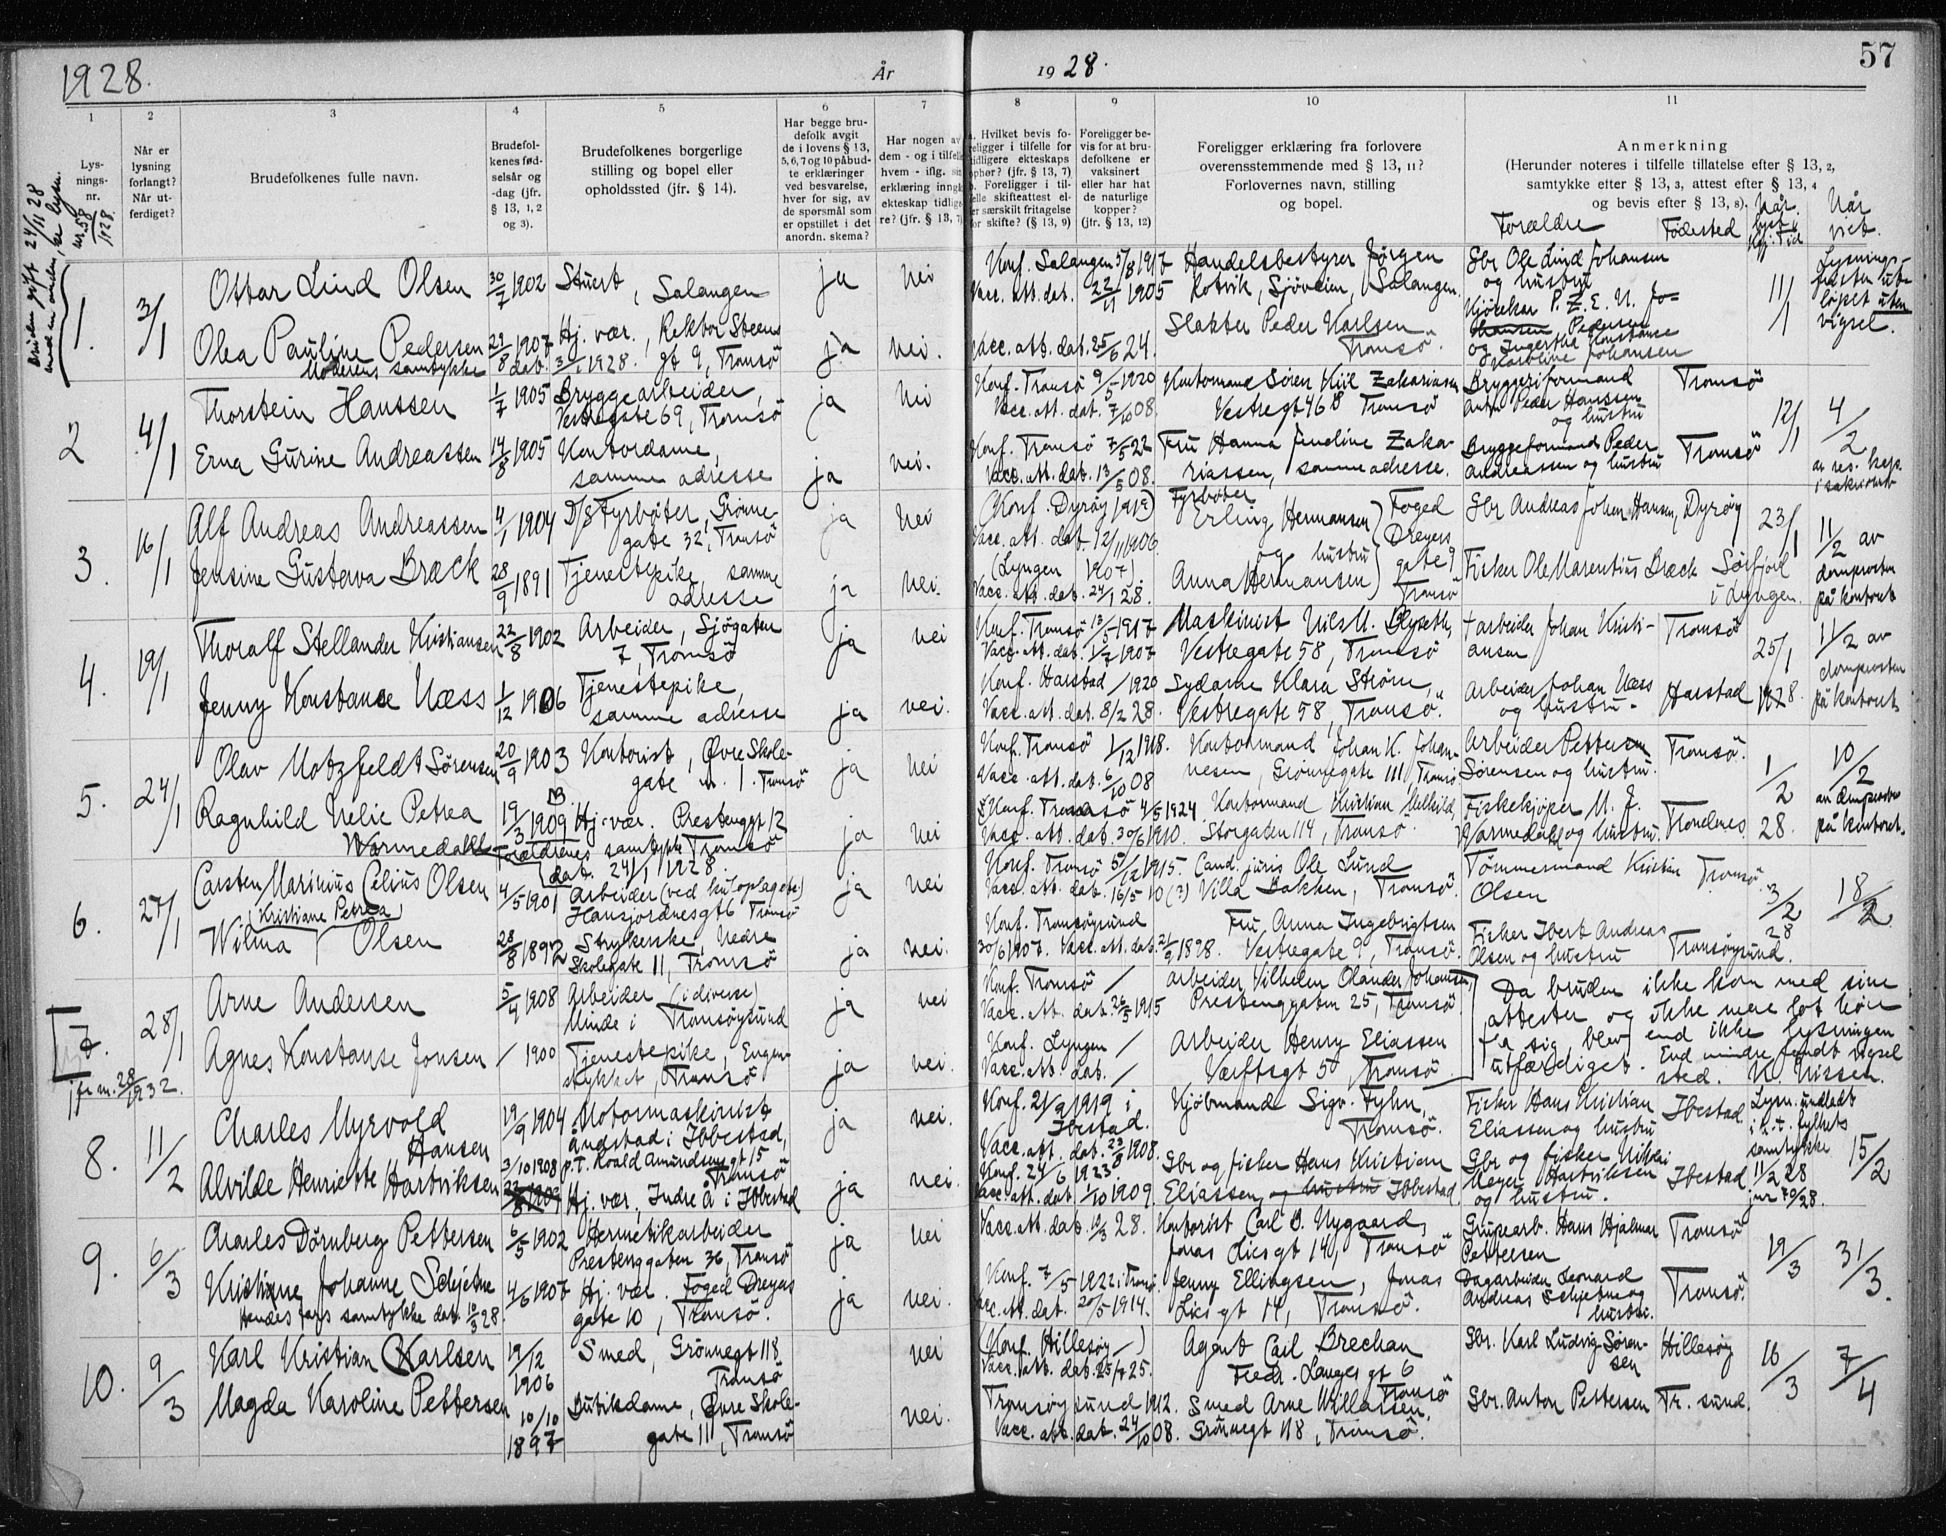 1928.
År
19 28.
57
1
2
3
4
5
6
7
8
9
10
11
Lys-
nings-
nr.
Når er
lysning
forlangt?
Når ut-
ferdiget?
Brudefolkenes fulle navn.
Brudefol-
kenes fød-
selsår og
-dag (jfr.
§ 13, 1, 2
og 3).
Brudefolkenes borgerlige
stilling og bopel eller
opholdssted (jfr. § 14).
Har begge bru-
defolk avgit
de i lovens § 13,
5, 6, 7 og 10 påbud-
te erklæringer
ved besvarelse,
hver for sig, av
de spørsmål som
er opstillet i det
anordn. skema?
Har nogen av
dem - og i tilfelle
hvem - iflg.
erklæring inngå
ekteskap tidlige-
re? (jfr. § 13, 7)
Hvilket bevis fo-
religger i tilfelle for
tidligere ekteskaps
ophør? (jfr. § 13, 7)
b. Foreligger i til-
felle skifteattest el-
ler særskilt fritagelse
for skifte? (§ 13, 9)
Foreligger be-
vis for at bru-
defolkene er
vaksinert
eller har hat
de naturlige
kopper?
(jfr. § 13, 12)
Foreligger erklæring fra forlovere
overensstemmende med § 13, 11?
Forlovernes navn, stilling
og bopel.
Anmerkning
(Herunder noteres i tilfelle tillatelse efter § 13, 2,
samtykke efter § 13, 3, attest efter § 13, 4
og bevis efter § 13, 8).
Forældre
Fødested
Når
Når
viet.
Bruden gift 24/11 28
med en anden, se lysn.
nr. 58
1928.
1.
3/1
Ottar Lind Olsen
30/7 1902
Stuert,
Salangen
ja
nei
Konf. Salangen 5/8 1917
Vacc. att. dat. 22/11 1905
Handelsbestyrer Jørgen
Rotvik, Sjøveien, Salangen.
Gbr Ole Lind Johansen
og hustru
11/1
Lysnings-
fristen ut-
løpet uten
vigsel.
Olea Pauline Pedersen
Moderens samtykke
29/8 1907
dat. 3/1 1928.
Hj. vær., Rektor Steens
gt 9, Tromsö
ja
nei.
Vacc. att. dat. 25/6 24.
Slakter Peder Karlsen
Tromsö.
Kjørekar P. Z. E. N. Jo-
hansen Pedersen
og Ingertha Konstanse
Karoline Johansen
2
4/1
Thorstein Hanssen
1/7 1905
Bryggearbeider,
Vestregate 69, Tromsö
ja
nei
Konf. Tromsö 9/5 1920
Vacc. att. dat. 7/10 08.
Kontormand Søren Kiil Zakariassen
Vestregt 46 B Tromsö
Bryggeriformand
Anton Peder Hanssen
og hustru
Tromsö
12/1
4/2
av res. kap.
i sakristiet
Erna Gurine Andreassen
14/8 1905
Kontordame,
samme adresse
ja
nei.
Konf. Tromsö 7/5 22
Vacc. att. dat. 13/5 08.
Fru Hanna Jineline Zaka-
riassen, samme adresse.
Bryggeformand Peder
Andreassen og hustru
Tromsö
3.
16/1
Alf Andreas Andreassen
4/1 1904
D/S Fyrbøter, Grønne-
gate 32, Tromsö
ja
nei
(Konf. Dyrøy 1919)
Vacc. att. dat. 12/11 1906
Fyrbøter
Erling Hermansen
og hustru
Anna Hermansen
Foged
Dreyers
gate 9
Tromsö
Gbr Andreas Johan Hansen, Dyrøy
23/1
11/2 av
domprosten
på kontoret
Jensine Gustava Bræck
28/9 1891
Tjenestepike, samme
adresse
ja
nei.
(Lyngen 1907)
Vacc. att. dat. 24/1 28.
Fisker Ole Marentius Bræck
Sørfjord
i Lyngen.
4.
19/1
Thoralf Stellander Kristiansen
22/8 1902
Arbeider, Sjøgaten
7, Tromsö
ja
nei
Konf. Tromsö 13/5 1917
Vacc. att. dat. 1/7 1907
Maskinist Nils M. Blyseth,
Vestregate 58, Tromsö
† arbeider Johan Kristi-
ansen
Tromsö
25/1
1928.
11/2 av
domprosten
på kontoret
Jenny Konstance Næss
1/12 1906
Tjenestepike,
samme adresse
ja
nei.
Konf. Harstad / 1920
Vacc. att. dat. 8/2 28.
Sydame Klara Strøm,
Vestregate 58, Tromsö.
Arbeider Johan Næss
og hustru.
Harstad
5.
24/1
Olav Motzfeldt Sørensen
20/9 1903
Kontorist, Øvre Skole-
gate n. 1. Tromsö
ja
nei
Konf. Tromsö 1/12 1918.
Vacc. att. dat. 6/10 08
Kontormand Johan K. Johan-
nesen, Grønnegate 111, Tromsö
Arbeider Petter
Sørensen og hustru.
Tromsö.
1/2
28.
10/2
av domprosten
på kontoret.
Ragnhild Nelie Petrea
Warmedahl
19/3 1909
Hj. vær. Prestenggt 12
Tromsö
Forældrenes samtykke
dat. 24/1 1928
ja
nei
Konf. Tromsö 4/5 1924
Vacc. att. dat. 30/6 1910.
Kontormand Kristian Melkild,
Storgaten 114, Tromsö.
Fiskekjøper M. J.
Warmedahl og hustru.
Trondenes
6.
27/1
Carsten Marinius Celius Olsen
4/5 1901
Arbeider (ved kuloplaget)
Hansjordnesgt 6 Tromsö
ja
nei
Konf. Tromsö 5/12 1915.
Vacc. att. dat. 16/5 10 (?)
Cand. juris Ole Lund
Villa Bakken, Tromsö.
Tømmermand Kristian
Olsen
Tromsö.
3/2
28
18/2
(Kristiane Petrea)
Wilma Olsen
28/8 1892
Strykerske, Nedre
Skolegate 11, Tromsö
ja
nei.
Konf. Tromsøysund
30/6 1907. Vacc. att. dat. 21/9 1898.
Fru Anna Ingebrigtsen
Vestregate 9, Tromsö
Fisker Ibert Andreas
Olsen og hustru
Tromsøysund.
7.
28/1
Arne Andersen
5/4 1908
Arbeider (i diverse)
Minde i Tromsøysund
ja
nei
Konf. Tromsö /
Vacc. att. dat. 26/5 1915
Arbeider Vilhelm Olander Johansen,
Prestenggaten 25, Tromsö.
Da bruden ikke kom med sine
attester og ikke mere lot høre
fra sig, blev end ikke lysningen
utfærdiget. End mindre fandt vigsel
sted. N. Nissen.
Agnes Konstanse Jonsen
/ 1900
Tjenestepike, Engen-
stykket, Tromsö
ja
nei.
Konf. Lyngen /
Vacc. att. dat. /
Arbeider Henry Eliassen
Værftsgt 5, Tromsö
jfr nr. 28/1932.
8.
11/2
Charles Myrvold
Hansen
19/9 1904
Motormaskinist
Åndstad i Ibbestad,
p.T. Roald Amundsens gt 15
Tromsö
ja
nei.
Konf. 21/9 1919 i
Ibestad.
Vacc. att. dat. 23/9 1908.
Kjøbmand Sigv. Fyhn,
Tromsö.
Fisker Hans Kristian
Eliassen og hustru
Ibestad
Lysn. undladt
i h. t. fylkets
samtykke
11/2 28
jnr 70/28.
15/2
Alvilde Henriette Hartviksen
3/10 1908
22/8 1909
Hj. vær, Indre Å i Ibbestad
ja
nei.
Konf. 24/6 1923
Vacc. att. dat. 1/10 1909.
Gbr og fisker Hans Kristian
Eliassen, og hustru Ibbestad
Gbr og fisker Nikolai
Meyer Hartviksen
og hustru.
Ibestad
9.
6/3
Charles Dörnberg Pettersen
6/5 1902
Hermetikarbeider
Prestenggaten 36, Tromsö
ja
nei
Vacc. att. dat. 10/3 28.
Kontorist Carl B. Nygaard,
Jonas Lies gt 14, Tromsö
Grubearb. Hans Hjalmar
Pettersen
Tromsö
19/3
31/3.
Kristine Johanne Schjetne
Hendes fars samtykke dat. 10/3 28.
4/6 1907
Hj. vær. Foged Dreyers
gate 10, Tromsö.
ja
nei.
Konf. 7/5 1922 i Tromsö.
Vacc. att. dat. 20/5 1914.
Jenny Ellingsen, Jonas
Lies gt 14, Tromsö.
Dagarbeider Leonard
Andreas Schjetne og
hustru.
Tromsö.
10.
9/3
Karl Kristian Karlsen
19/12
1906
Smed, Grönnegt 118
Tromsö
nei
(Konf. Hillesøy —)
Vacc. att. dat. 25/7 25.
Agent Carl Brechan
Fredr. Langes gt 6
Tromsö
Gbr. Karl Ludvig Søren-
sen
Hillesøy
16/3
7/4
Magda Karoline Pettersen
10/10
1897
Butikdame, Øvre Skole-
gate 111, Tromsö
nei.
Tromsøysund 1912.
Vacc. att. dat. 24/10 08.
Smed Arne Willassen,
Grönnegt 118, Tromsö.
Gbr. Anton Pettersen
Tr. sund.